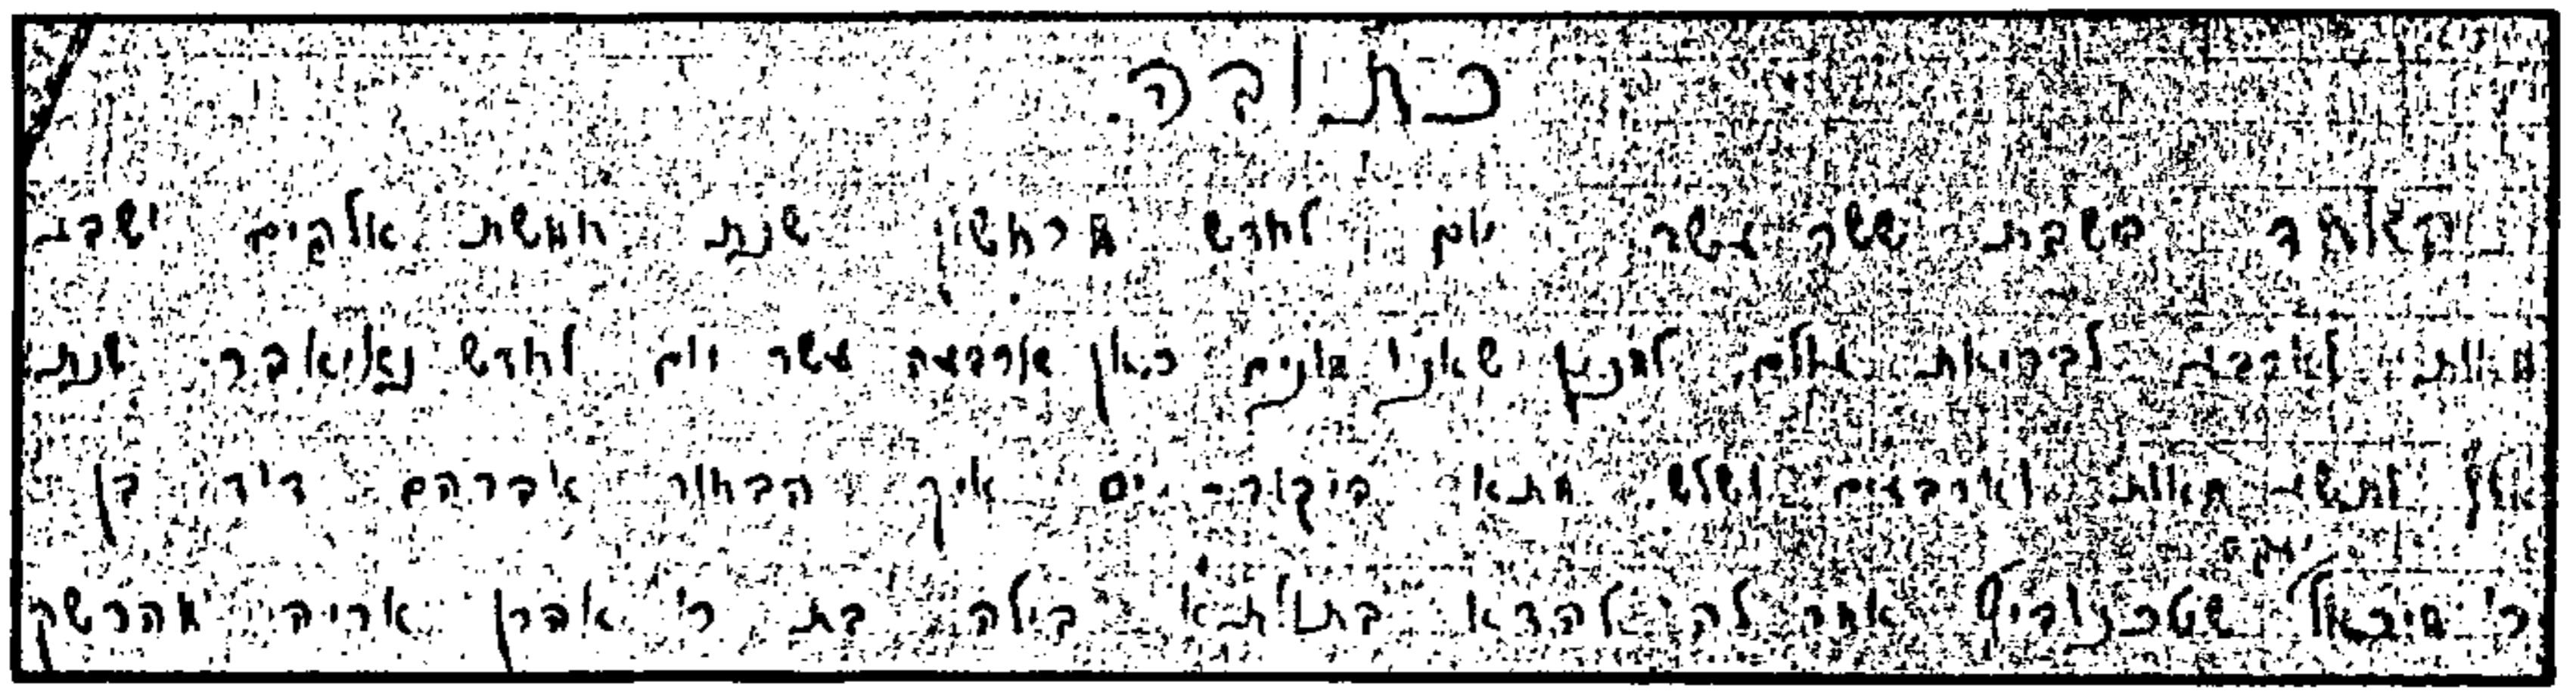 כתובה.
באחד בשבת ששה עשר יום לחדש מרחשון שנת חמשת אלפים ושבע
מאות וארבע לבריאת עולם למנין שאנו מונים כאן ארבעה עשר יום לחדש נאוואבר שנת
אלף ותשע מאות וארבעים ושלש. מתא ים איך הבחור אברהם דוד בן
יעקב
ר' מיכאל אמר לה להדא בתולתא בילה בת ר' אהרן אריה